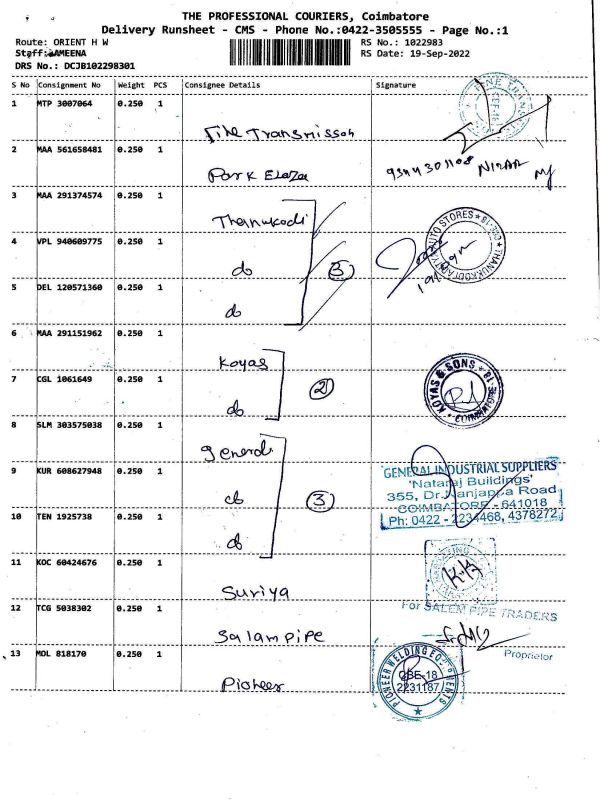 THE PROFESSIONAL COURIERS, Coimbatore
Delivery Runsheet - CMS - Phone No.:0422-3505555 - Page No.:1
Route: ORIENT H W RS No.: 1022983
Staff: AMEENA RS Date: 19-Sep-2022
DRS No.: DCJB102298301
S No Consignment No Weight PCS Consignee Details Signature
1 MTP 3007064 0.250 1 Fine Transmisson
2 MAA 561658481 0.250 1 Park Elaza NIZAR
3 MAA 291374574 0.250 1 Thanukodi
4 VPL 940609775 0.250 1 do 3 AUTO STORES
5 DEL 120571360 0.250 1 do
6 MAA 291151962 0.250 1 Koyas
7 CGL 1061649 0.250 1 do 2 KOYAS & SONS COIMBATORE-18
8 SLM 303575038 0.250 1 General
9 KUR 608627948 0.250 1 do 3 GENERAL INDUSTRIAL SUPPLIERS
'Nataraj Buildings'
355, Dr.Nanjappa Road
COIMBATORE - 641018
Ph: 0422 - 2234468, 4378272
10 TEN 1925738 0.250 1 do
11 KOC 60424676 0.250 1 Suriya K.K
12 TCG 5038302 0.250 1 Salampipe For SALEM PIPE TRADERS
Proprietor
13 MDL 818170 0.250 1 Pioneer PIONEER WELDING EQUIPMENTS
CBE-18
2231187